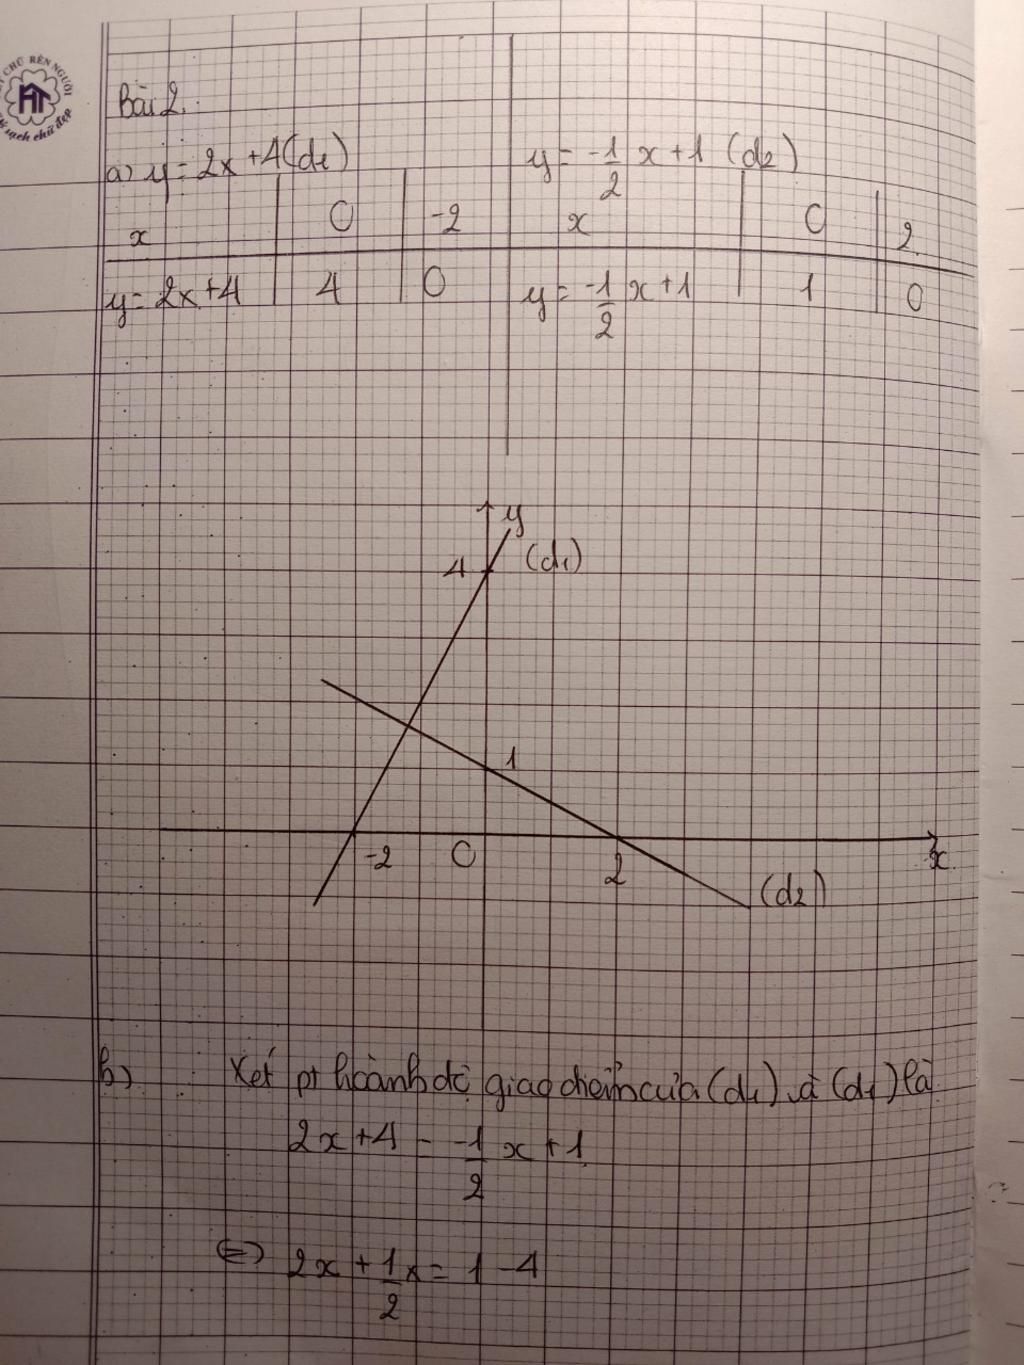 CHỮ RÈN NGƯỜI
HT
sạch chữ đẹp
Bài 2.
a) y = 2x + 4 (d1)
y = -1/2 x + 1 (d2)
x | 0 | -2
x | 0 | 2
y = 2x + 4 | 4 | 0
y = -1/2 x + 1 | 1 | 0
y
4
(d1)
1
-2
O
2
x
(d2)
b) Xét pt hoành độ giao điểm của (d1) và (d1) là
2x + 4 = -1/2 x + 1
⇔ 2x + 1/2 x = 1 - 4